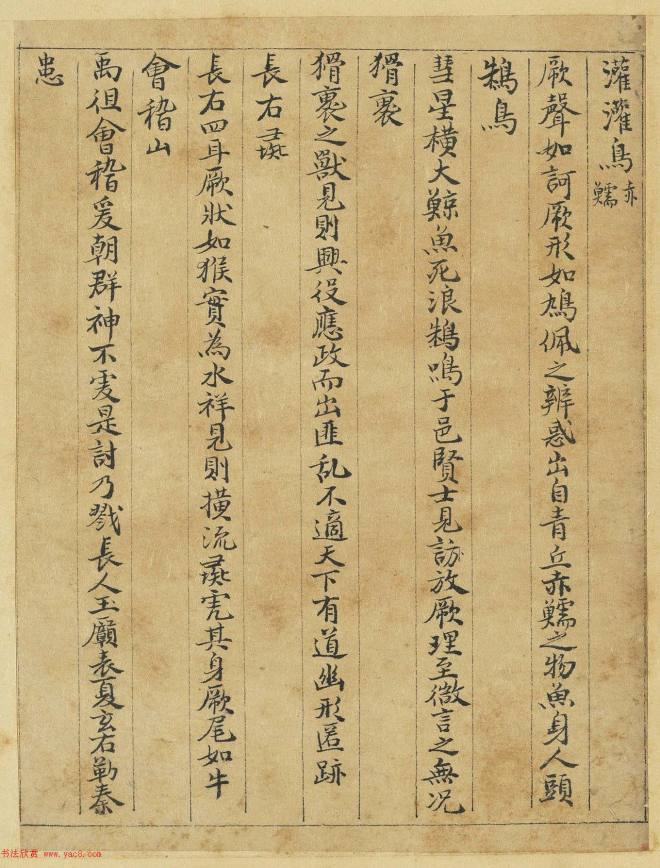 灌灌鳥 赤鱬
厥聲如訶厥形如鳩佩之辨惑出自青丘赤鱬之物魚身人頭
鴸鳥
彗星橫大鯨魚死浪鴸鳴于邑賢士見訪放厥理至微言之無况
猾褢
猾褢之獸見則興役應政而出匪乱不適天下有道幽形匿跡
長右彘
長右四耳厥狀如猴實為水祥見則撗流彘虎其身厥尾如牛
會稽山
禹徂會稽爰朝群神不虔是討乃戮長人玉匱表夏玄石勒秦
患
书法欣赏 www.yac8.com